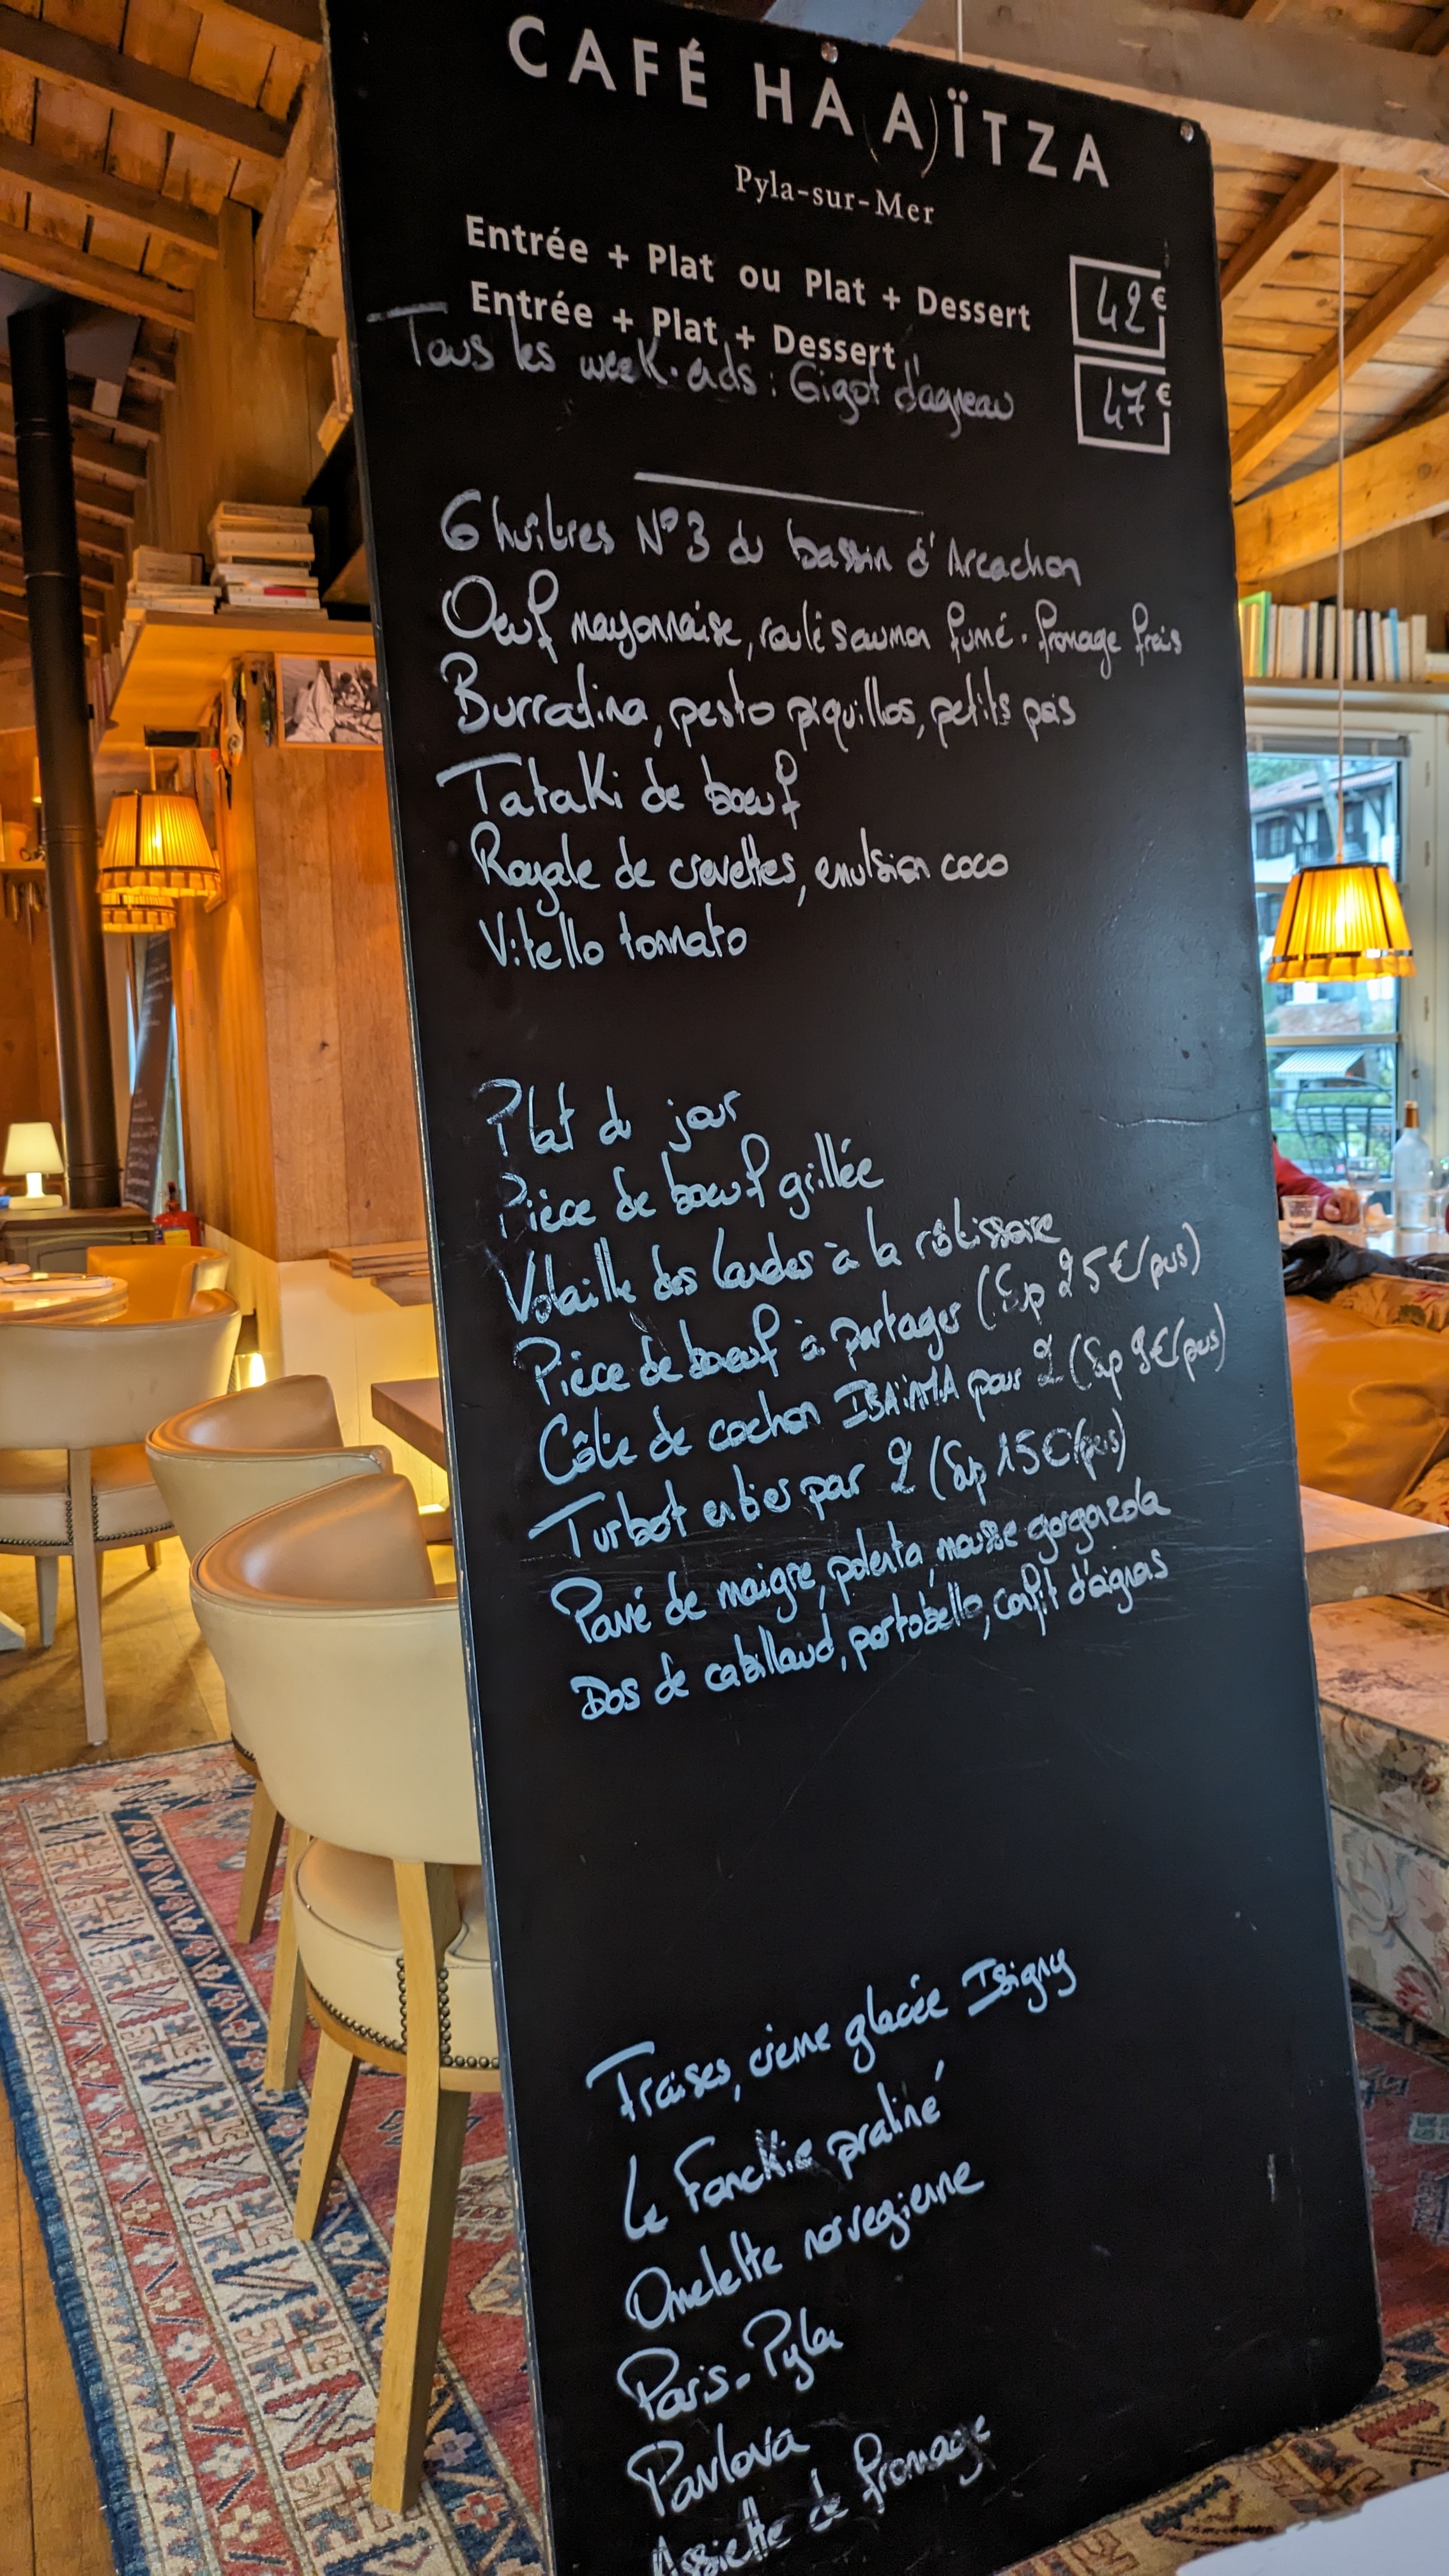 CAFÉ HA(A)ÏTZA
Pyla-sur-Mer
Entrée + Plat ou Plat + Dessert 42€
Entrée + Plat + Dessert 47€
Tous les week-ends : Gigot d'agneau
6 huîtres N°3 du bassin d'Arcachon
Oeuf mayonnaise, roulé saumon fumé - fromage frais
Burratina, pesto piquillos, petits pois
Tataki de boeuf
Royale de crevettes, emulsion coco
Vitello tonnato
Plat du jour
Pièce de boeuf grillée
Volaille des Landes à la rôtissoire
Pièce de boeuf à partager (Sup 25€/pers)
Côte de cochon IBAÏAMA pour 2 (Sup 9€/pers)
Turbot entier par 2 (Sup 15€/pers)
Pavé de maigre, polenta, mousse gorgonzola
Dos de cabillaud, portobello, confit d'oignons
Fraises, crème glacée Isigny
Le Fonckie praliné
Omelette norvegienne
Paris-Pyla
Pavlova
Assiette de fromage